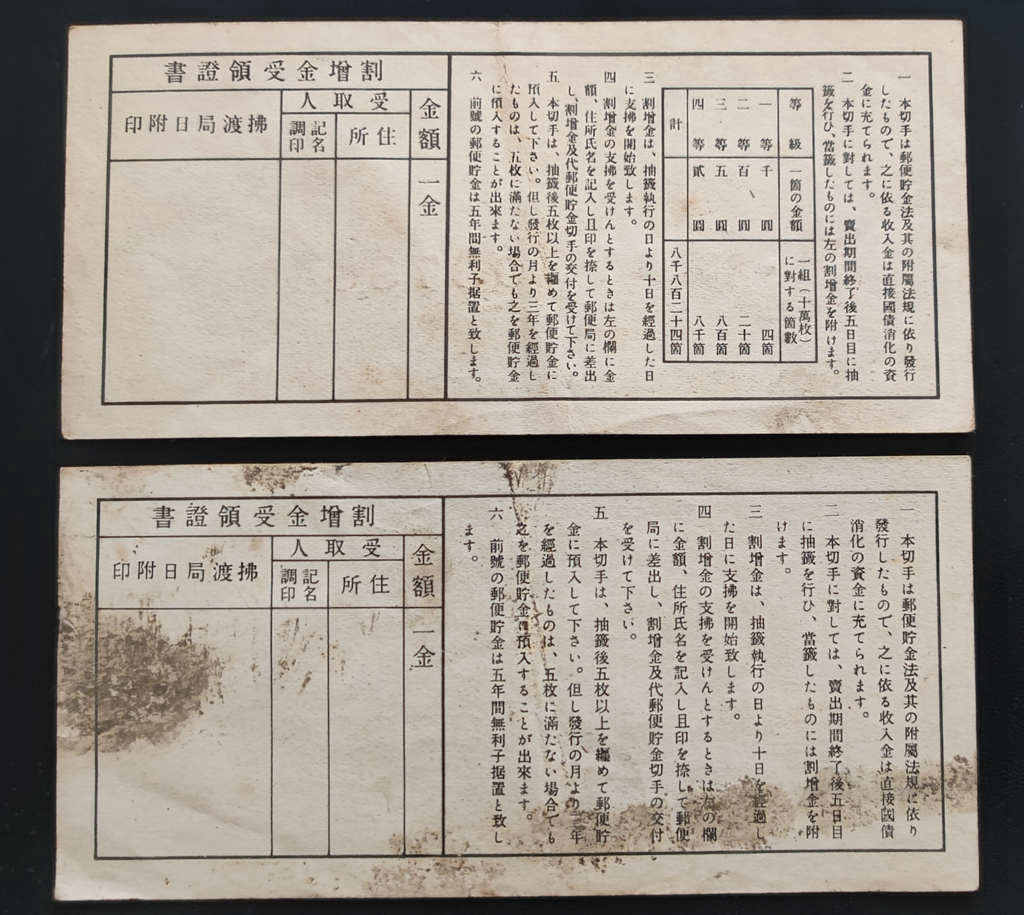 一 本切手は郵便貯金法及其の附屬法規に依り發行
したもので、之に依る收入金は直接國債消化の資
金に充てられます。
二 本切手に對しては、賣出期間終了後五日目に抽
籤を行ひ、當籤したものには左の割增金を附けます。
等級 一箇の金額 一組(十萬枚)に對する箇數
一等 千圓 四箇
二等 百圓 二十箇
三等 五圓 八百箇
四等 貳圓 八千箇
計 八千八百二十四箇
三 割增金は、抽籤執行の日より十日を經過した日
に支拂を開始致します。
四 割增金の支拂を受けんとするときは左の欄に金
額、住所氏名を記入し且印を捺して郵便局に差出
し、割增金及代郵便貯金切手の交付を受けて下さい。
五 本切手は、抽籤後五枚以上を纒めて郵便貯金に
預入して下さい。但し發行の月より三年を經過し
たものは、五枚に滿たない場合でも之を郵便貯金
に預入することが出來ます。
六 前號の郵便貯金は五年間無利子据置と致します。
書證領受金增割
金額 一金
人取受
所住
記名調印
印附日局渡拂
一 本切手は郵便貯金法及其の附屬法規に依り
發行したもので、之に依る收入金は直接國債
消化の資金に充てられます。
二 本切手に對しては、賣出期間終了後五日目
に抽籤を行ひ、當籤したものには割增金を附
けます。
三 割增金は、抽籤執行の日より十日を經過し
た日に支拂を開始致します。
四 割增金の支拂を受けんとするときは左の欄
に金額、住所氏名を記入し且印を捺して郵便
局に差出し、割增金及代郵便貯金切手の交付
を受けて下さい。
五 本切手は、抽籤後五枚以上を纒めて郵便貯
金に預入して下さい。但し發行の月より三年
を經過したものは、五枚に滿たない場合でも
之を郵便貯金に預入することが出來ます。
六 前號の郵便貯金は五年間無利子据置と致し
ます。
書證領受金增割
金額 一金
人取受
所住
記名調印
印附日局渡拂